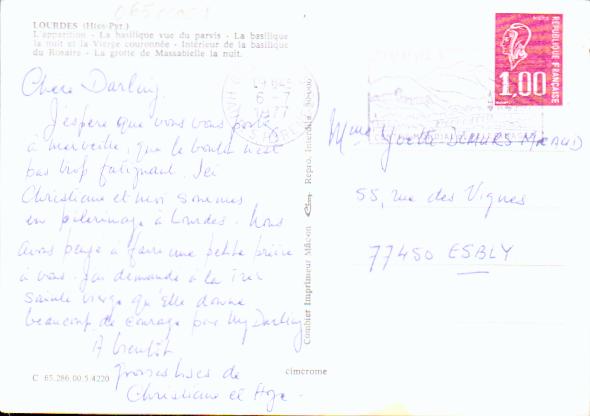 LOURDES (Htes-Pyr.)
L'apparition - La basilique vue du parvis - La basilique
la nuit et la Vierge couronnée - Intérieur de la basilique
du Rosaire - La grotte de Massabielle la nuit.
Chere Darling
J'espère que vous vous portez
à merveille, que le boulot n'est
pas trop fatigant. Ici
Christiane et moi sommes
en pèlerinage à Lourdes. Nous
avons pensé à faire une petite prière
à vous. J'ai demandé à la Très
Sainte Vierge qu'Elle donne
beaucoup de courage pour My Darling
A bientôt
grosses bises de
Christiane et
C 65.286.00.5.4220
cimcrome
Combier Imprimeur Mâcon
Repro. Interdite
RÉPUBLIQUE FRANÇAISE
1,00
6 - 7
1977
Mme Yvette
55, rue des Vignes
77450 ESBLY